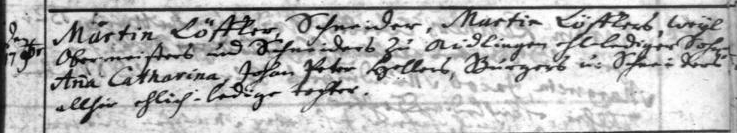 Martin Löffler, Schneider, Martin Löfflers, weyl
Obermeisters und Schneiders zu Aidlingen ehl. lediger Sohn
Aña Catharina, Johan Peter Hellers, Burgers u. Schneiders
allhier ehlich-ledige tochter.